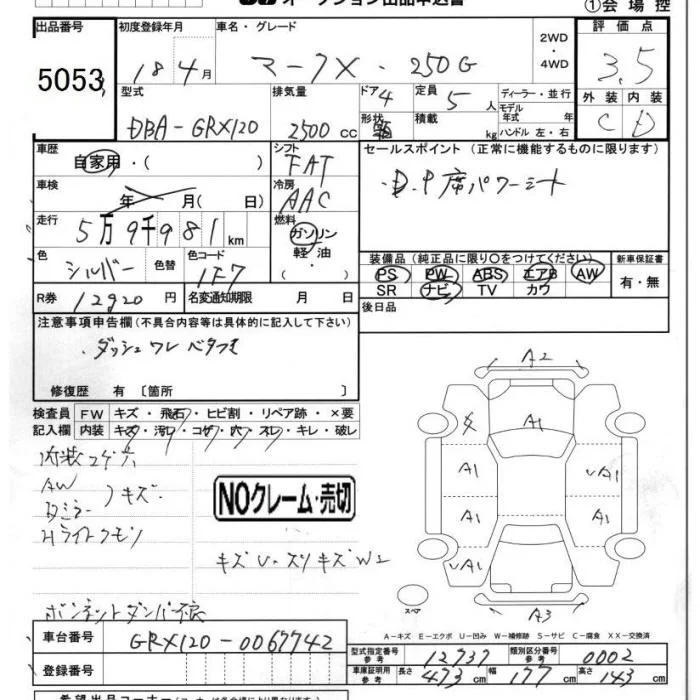 オークション出品申込書
①会場控
出品番号 初度登録年月 車名・グレード 2WD・4WD 評価点
5053 18年4月 マークX・250G 3.5
型式 排気量 ドア 定員 ディーラー・並行 外装 内装
DBA-GRX120 2500cc 4 5人 モデル年式 年 C D
形状 積載 kg ハンドル 左・右
車歴 シフト セールスポイント(正常に機能するものに限ります)
自家用・( ) FAT ・D.P席パワーシート
車検 年 月(日) 冷房 AAC
走行 5万9千981km 燃料 ガソリン・軽油・
色 シルバー 色替 色コード 1F7
装備品(純正品に限り○をつけてください) 新車保証書
PS PW ABS エアB AW 有・無
SR ナビ TV カワ
R券 12920円 名変通知期限 月 日 後日品
注意事項申告欄(不具合内容等は具体的に記入して下さい)
・ダッシュワレ ベタつき
修復歴 有〔箇所 〕
検査員 FW キズ・飛石・ヒビ割・リペア跡・×要
記入欄 内装 キズ・汚レ・コゲ・穴・スレ・キレ・破レ
内装コゲ穴
AW
ミラー
キズ
Hライトクモリ
NOクレーム・売切
キズU・スリキズW2
ボンネットダンパー不良
A2
A1
A1 UA1
A1 A1
UA1
A3
スペア
A-キズ E-エクボ U-凹み W-補修跡 S-サビ C-腐食 XX-交換済
車台番号 GRX120-0067742
型式指定番号 参考 12737 類別区分番号 参考 0002
登録番号
車庫証明用 参考 長さ 473cm 幅 177cm 高さ 143cm
希望出品コーナー